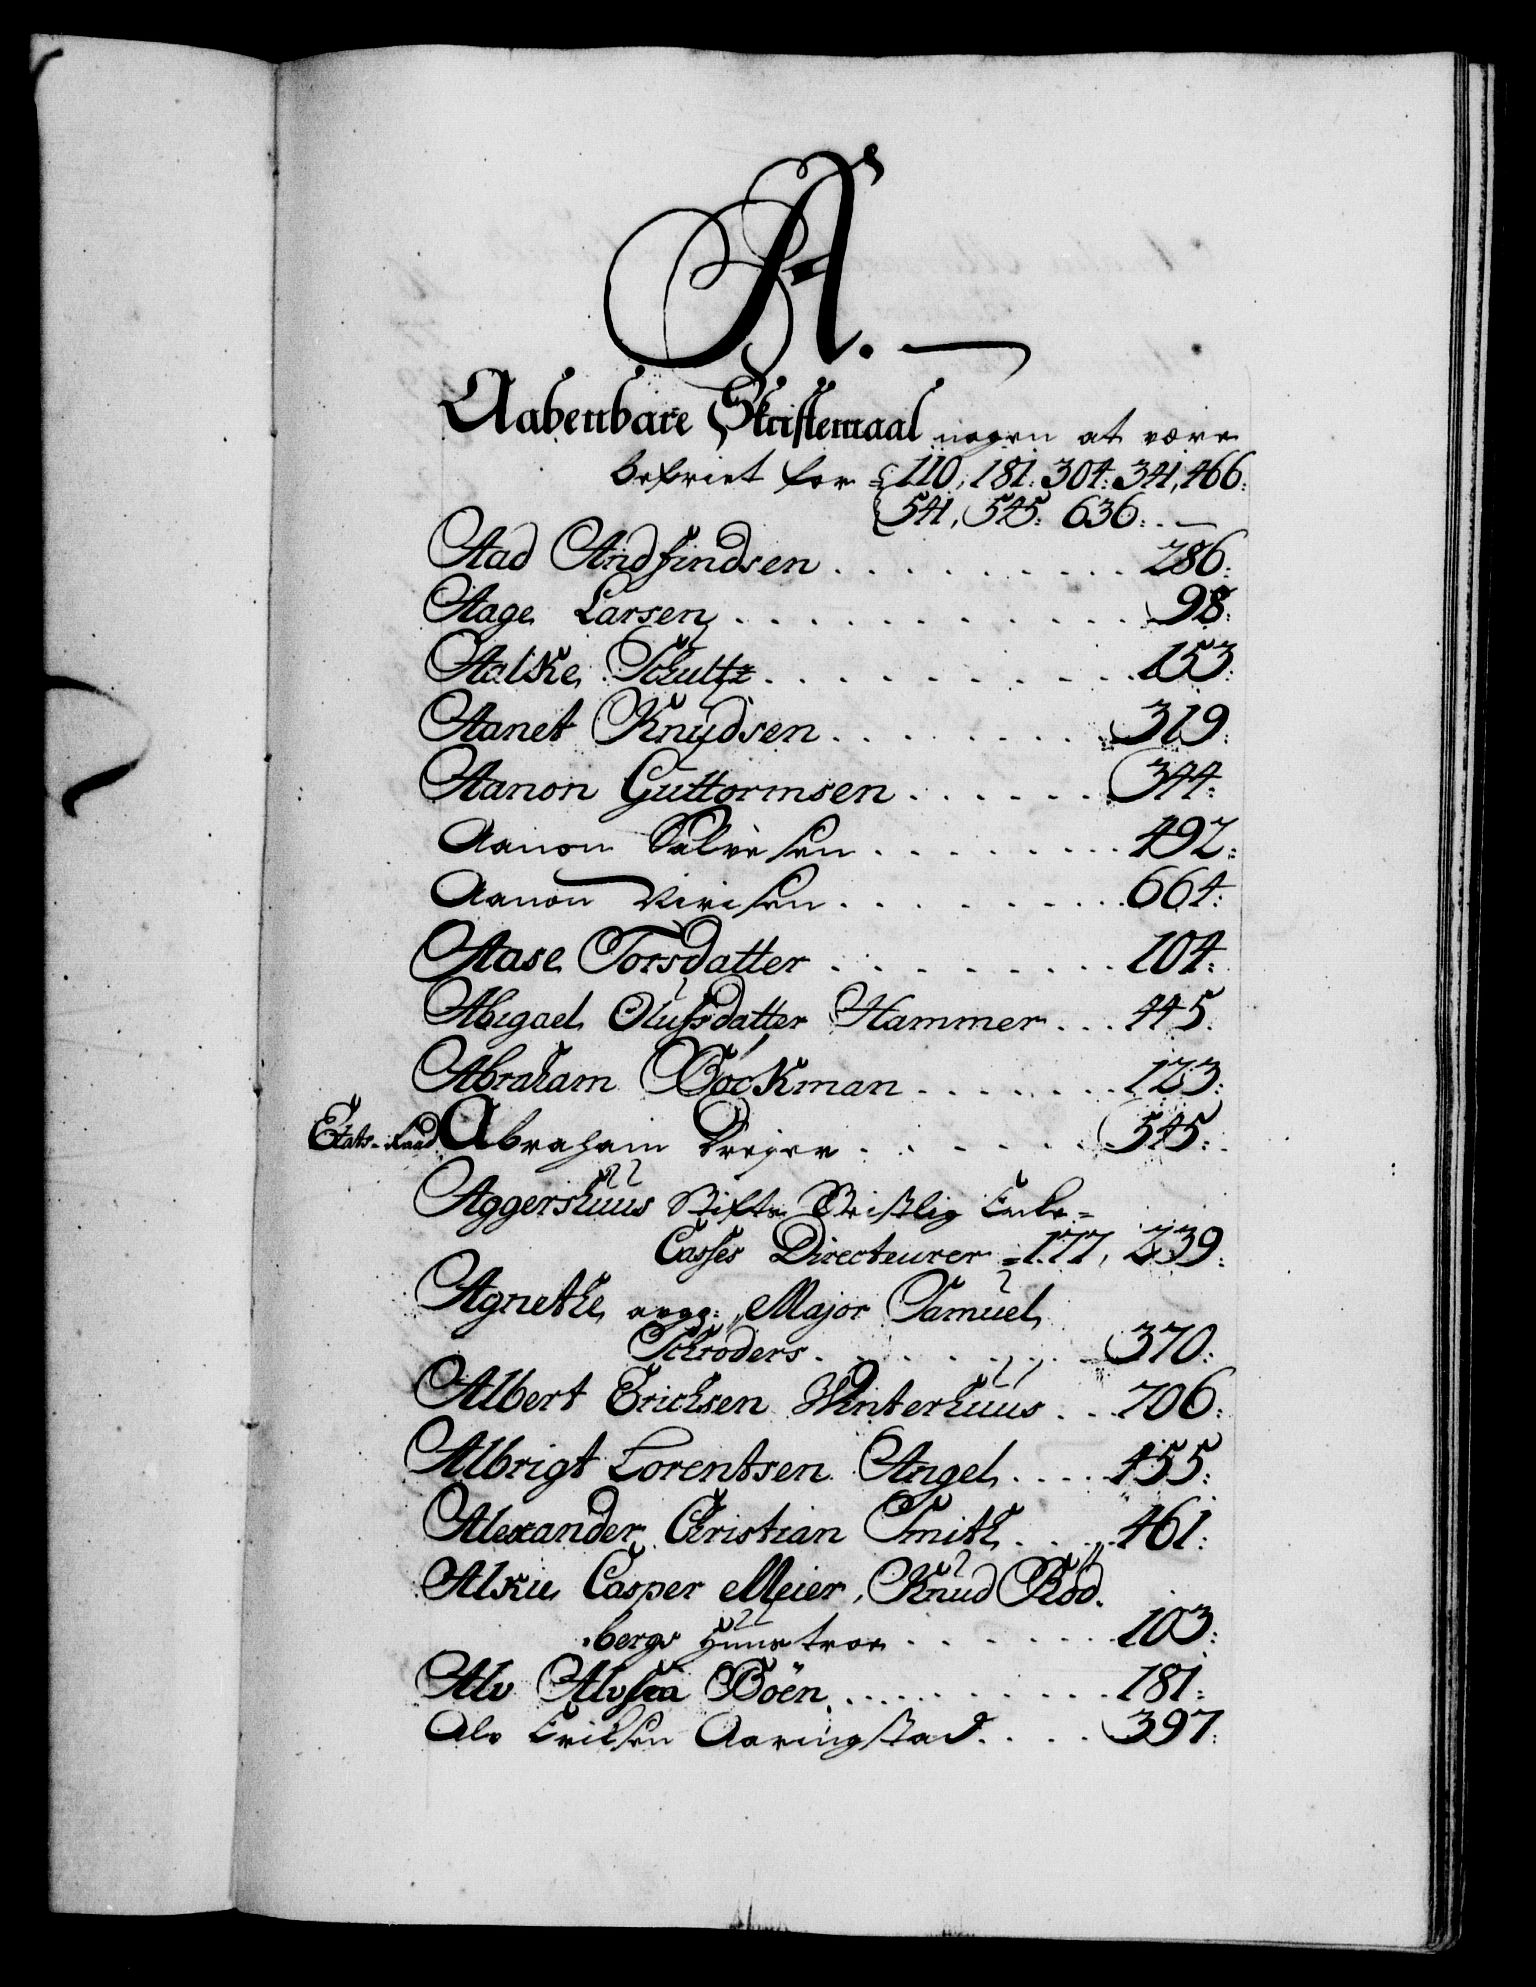 A.
Aabenbare Skriftemaal nogen at være
befriet for = 110, 181. 304. 341, 466.
541, 545. 636.
Aad Andfindsen . . . 286.
Aage Larsen . . . 98.
Aalke Schultz . . . 153.
Aanet Knudsen . . . 319.
Aanon Guttormsen . . . 344.
Aanon Salvesen . . . 492.
Aanon . . . 664.
Aase Torsdatter . . . 104.
Abigael Olufsdatter Hammer . . . 445.
Abraham Böckman . . . 123.
Etats-Raad Abraham Dreyer . . . 545.
Aggershuus Stifts Geistlig Enke-
Casses Directeurer = 177, 239.
Agnethe avgg: Major Samuel
Schröders . . . 370.
Albert Erichsen Winterhuus . . . 706.
Albrigt Lorentsen Angel . . . 455.
Alexander Christian Smith . . . 461.
Casper Meier, Knud Röd-
bergs Huustroe . . . 103.
Alv Alvsen Böen . . . 181.
Alv Erichsen Aaringstad . . . 397.